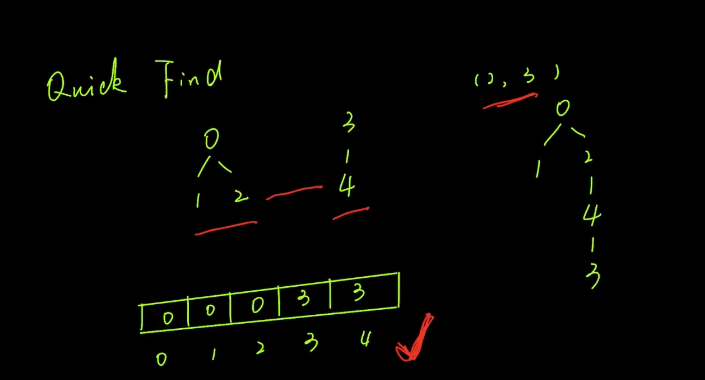 Quick Find
(2, 3)
0
1 2
3
4
0
1 2
4
3
0 0 0 3 3
0 1 2 3 4